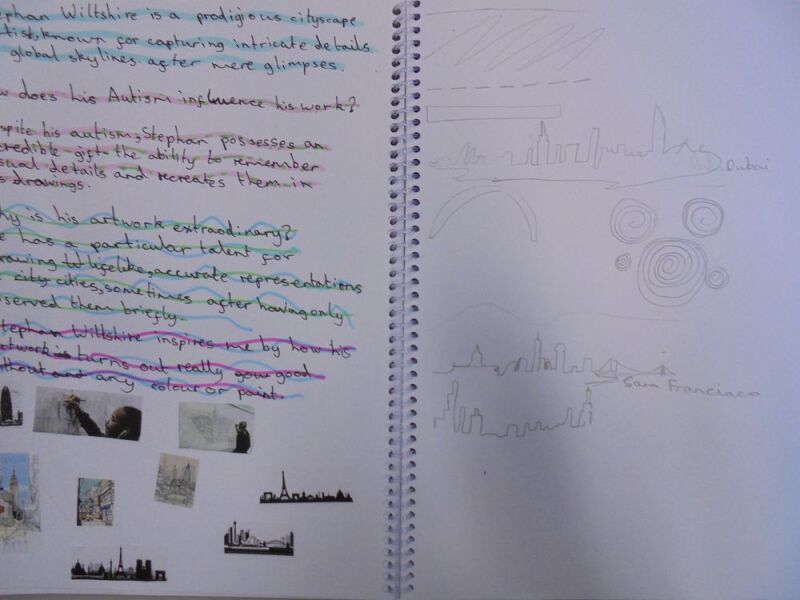 ephan Wiltshire is a prodigious cityscape
tist, known for capturing intricate details
global skylines. after mere glimpses.
w does his Autism influence his work?
spite his autism, Stephan, possesses an
credible gift the ability to remember
sual details and recreates them in
s drawings.
hy is his artwork extraodinary?
e has a particular talent for
rawing lifelike, accurate representations
city cities, sometimes after having only
served them briefly.
tephan Wiltshire inspires me by how his
rtwork is turns out really good
ithout and any colour or paint
Dubai
Sam Francisco